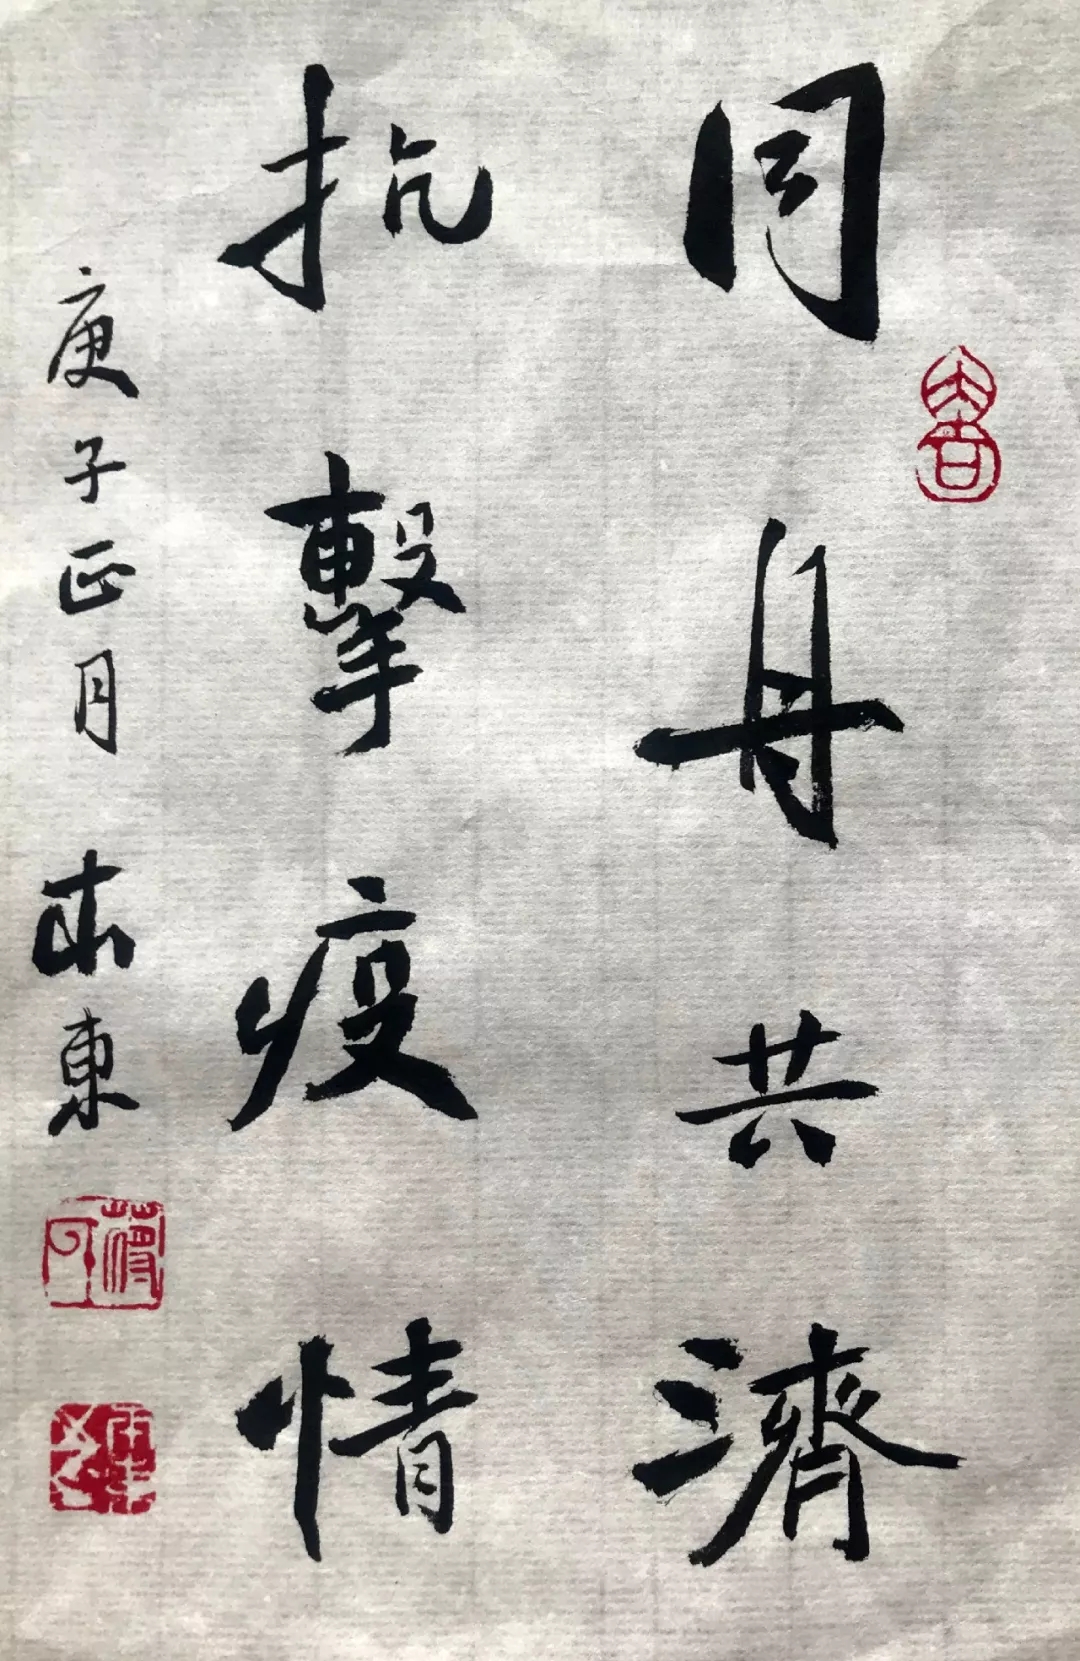 同舟共濟
抗擊疫情
庚子正月 東